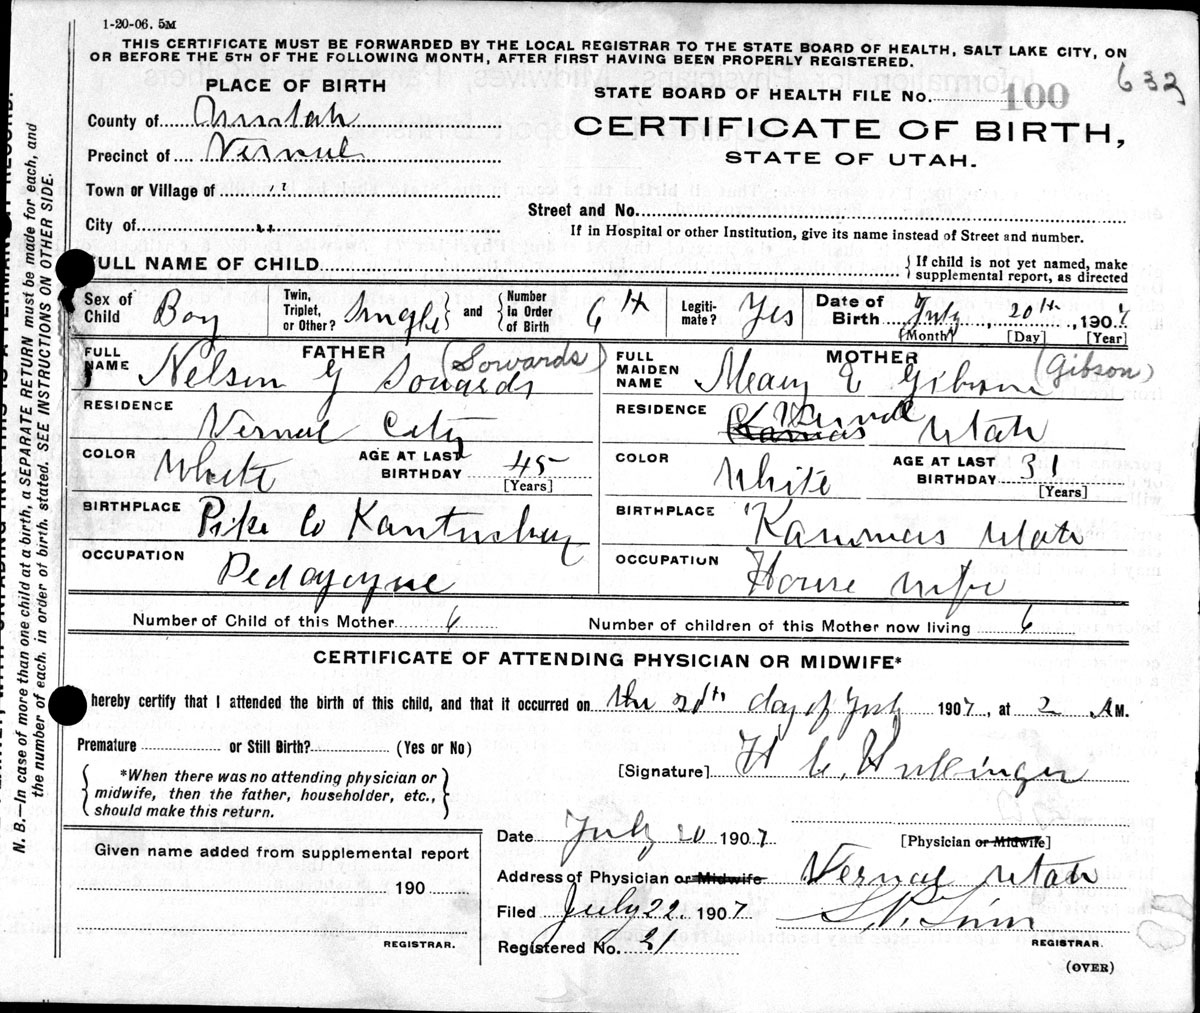 1-20-06. 5M
THIS CERTIFICATE MUST BE FORWARDED BY THE LOCAL REGISTRAR TO THE STATE BOARD OF HEALTH, SALT LAKE CITY, ON
OR BEFORE THE 5TH OF THE FOLLOWING MONTH, AFTER FIRST HAVING BEEN PROPERLY REGISTERED.
632
PLACE OF BIRTH
STATE BOARD OF HEALTH FILE No. 100
County of
CERTIFICATE OF BIRTH,
Precinct of Vernal
STATE OF UTAH.
Town or Village of "
Street and No.
City of "
If in Hospital or other Institution, give its name instead of Street and number.
FULL NAME OF CHILD
{ If child is not yet named, make
supplemental report, as directed
Sex of Child Boy
Twin, Triplet, or Other? Single } and { Number in Order of Birth 6th
Legiti-mate? Yes
Date of Birth July, 20th, 1907
(Month) [Day] [Year]
FATHER
FULL NAME Nelson G Sowards (Sowards)
MOTHER
FULL MAIDEN NAME Meary E Gibson (Gibson)
RESIDENCE Vernal City
RESIDENCE Kamas Vernal Utah
COLOR White AGE AT LAST BIRTHDAY 45 [Years]
COLOR White AGE AT LAST BIRTHDAY 31 [Years]
BIRTHPLACE Pike Co Kantuckey
BIRTHPLACE Kammas Utah
OCCUPATION
OCCUPATION House wife
Number of Child of this Mother 6
Number of children of this Mother now living 6
CERTIFICATE OF ATTENDING PHYSICIAN OR MIDWIFE*
hereby certify that I attended the birth of this child, and that it occurred on the 20th day of July 1907, at 2 AM.
Premature or Still Birth? (Yes or No)
[Signature] H C Hullinger
{ *When there was no attending physician or
midwife, then the father, householder, etc.,
should make this return. }
Date July 20 1907
[Physician or Midwife]
Given name added from supplemental report
Address of Physician or Midwife Vernal Utah
190
Filed July 22, 1907
REGISTRAR.
Registered No. 31
REGISTRAR.
(OVER)
N. B.—In case of more than one child at a birth, a SEPARATE RETURN must be made for each, and
the number of each, in order of birth, stated. SEE INSTRUCTIONS ON OTHER SIDE.